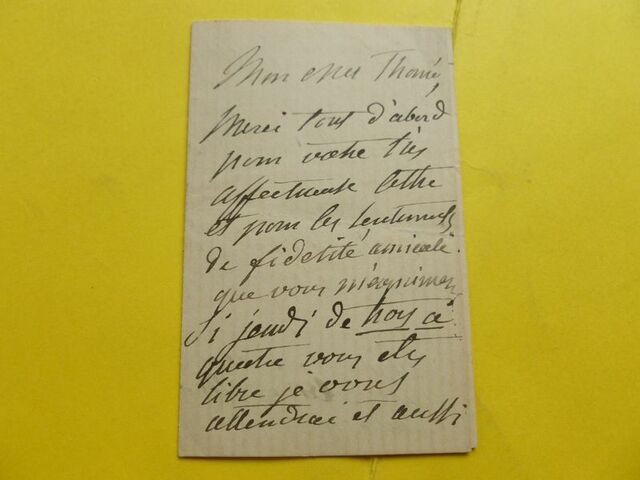 Mon cher Thomé,
Merci tout d'abord
pour votre très
affectueuse lettre
et pour les sentiments
de fidélité amicale
que vous m'exprimez
Si jeudi de trois à
quatre vous êtes
libre je vous
attendrai et aussi